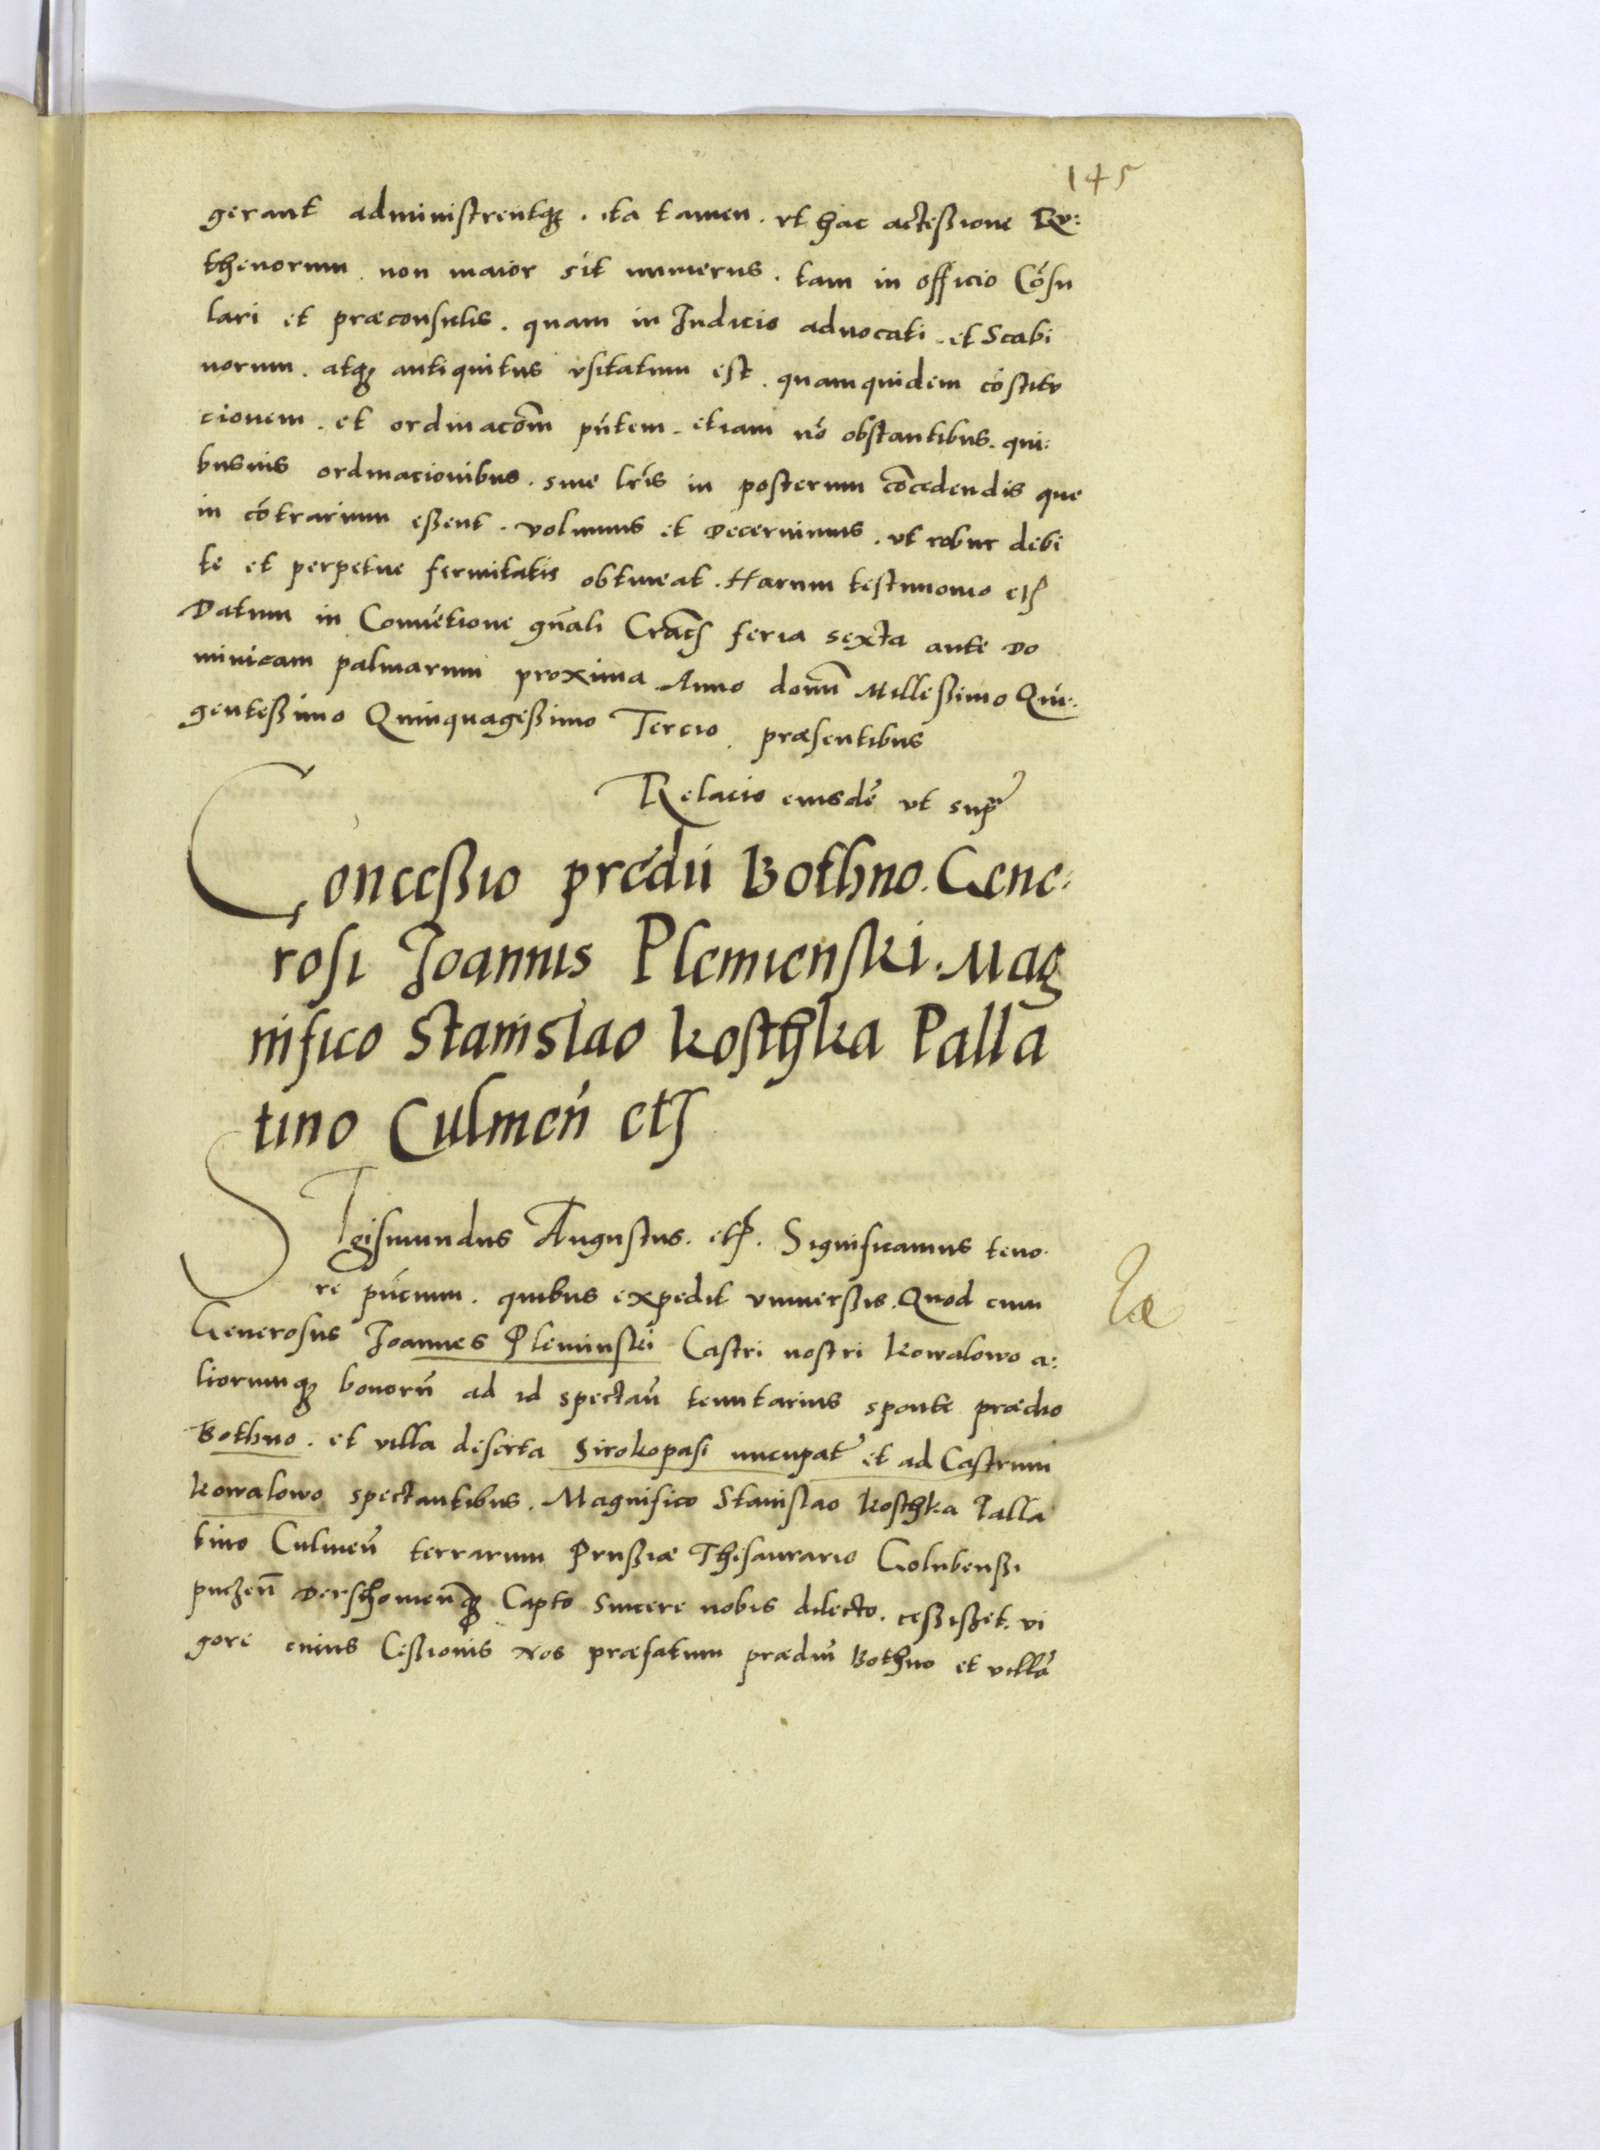 145
gerant administrentq₃ . ita tamen . vt hac accessione Ru:
thenorum . non maior sit numerus . tam in officio Cōsu
lari et præconsulis . quam in Judicio aduocati . et Scabi
norum . atq₃ antiquitus vsitatum est . quam quidem cōstitu
cionem . et ordinacōm pn̄tem . etiam nō obstantibus . qui:
busuis ordinacionibus . siue lr̄is in posterum cōcedendis que
in cōtrarium eßent . volumus et decernimus . vt robur debi
te et perpetue firmitatis obtineat . Harum testimonio etꝭ
Datum in Conuētione gn̄ali Cracꝭ feria sexta ante do
minicam palmarum proxima Anno domī Milleßimo Quī:
genteßimo Quinquageßimo Tercio . præsentibus
Relacio eiusdē vt supr̄
Conceßio prædii Bothno . Gene:
rosi Joannis Plemienski . Mag
nifico Stanislao Kosthka Palla
tino Culmeń etꝭ
Sigismundus Augustus . etꝭ . Significamus teno:
re pn̄cium . quibus expedit vniuersis . Quod cum
Generosus Joannes Pleminski Castri nostri Kowalowo a:
liorumq₃ bonorū ad id spectań tenutarius sponte prædio
Bothno . et villa deserta Sirokopasi nuncupat̄ et ad Castrum
Kowalowo spectantibus . Magnifico Stanislao Kosthka Palla
tino Culmeń terrarum Prußiæ Thesaurario Golubenßi
puczeń Derschouieńq₃ Capto sincere nobis dilecto . ceßißet . vi
gore cuius Ceßionis Nos præfatum prædiū Bothno et villā